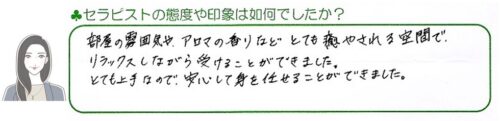 ♣セラピストの態度や印象は如何でしたか?
部屋の雰囲気や、アロマの香りなど とても癒やされる空間で、
リラックスしながら受けることができました。
とても上手なので、安心して身を任せることができました。